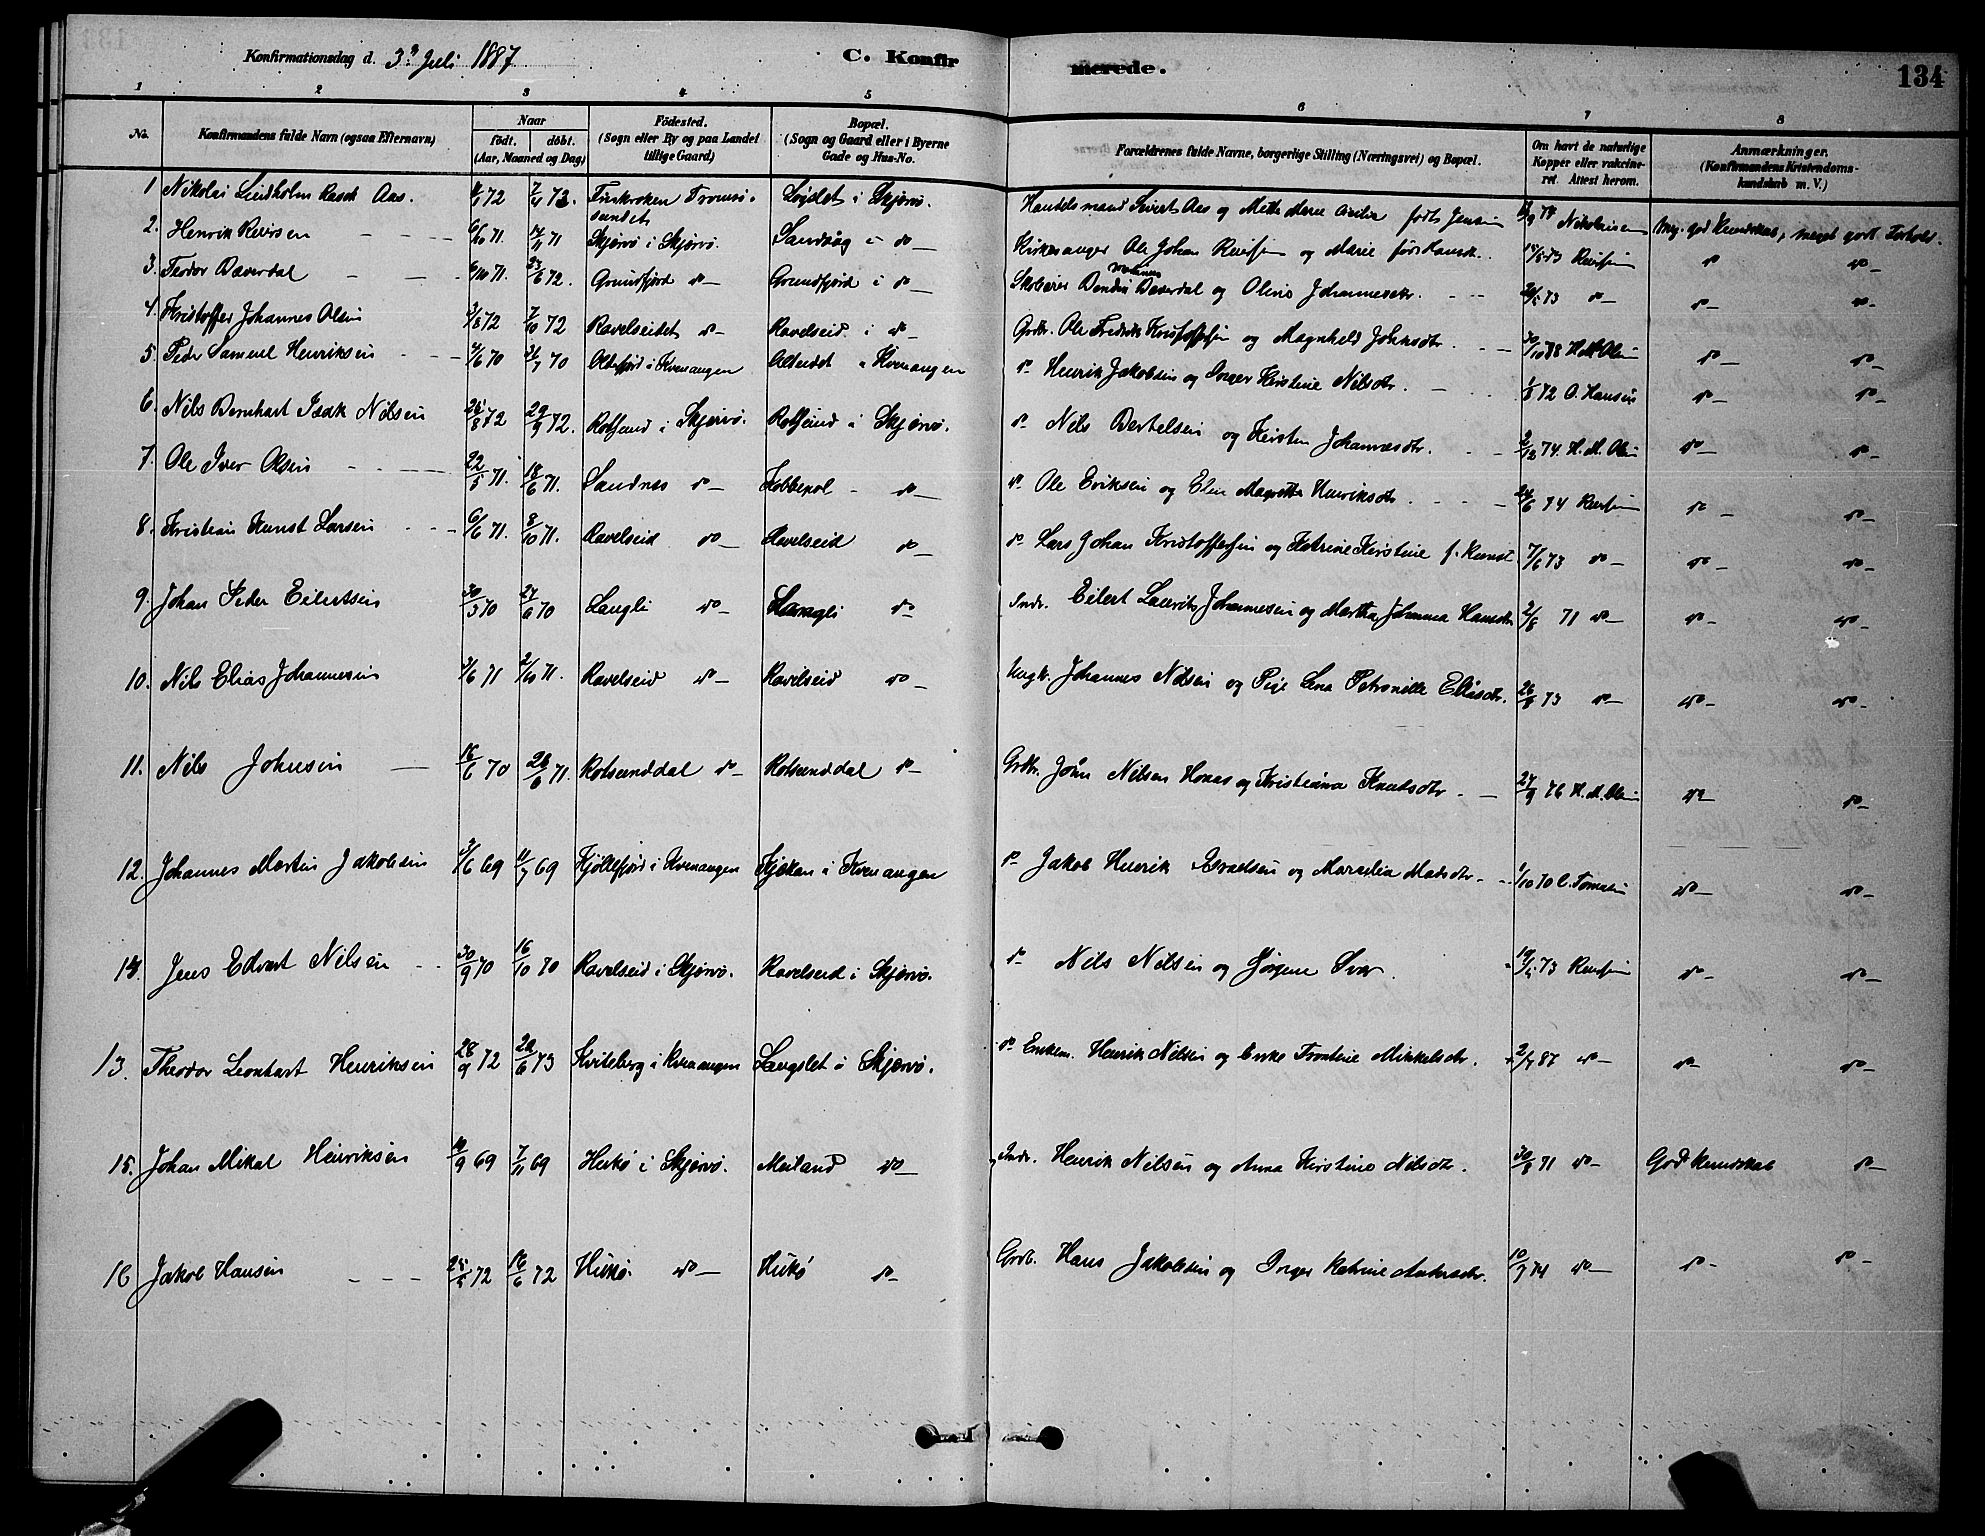 Konfirmationsdag d. 3die Juli 1887 C. Konfirmerede. 134
1 2 3 4 5 6 7 8
No. Konfirmandens fulde Navn (ogsaa Efternavn) Naar født. døbt. (Aar, Maaned og Dag) Fødested. (Sogn eller By og paa Landet tillige Gaard) Bopæl. (Sogn og Gaard eller i Byerne Gade og Hus-No. Forældrenes fulde Navne, borgerlige Stilling (Næringsvei) og Bopæl. Om havt de naturlige Kopper eller vakcineret. Attest herom. Anmærkninger. (Konfirmandens Kristendomskundskab m. V.)
1 Nikolai Lindholm Rasch Aas. 72 73. Finkroken Tromsøsundet i Skjervø. Handelsmand Sivert Aas og Mette Marie født Jensen Nikolaisen Mg. god Kundskab, meget godt Forhold.
2. Henrik Reiersen 6/10 71. 71 Skjervø i Skjervø. Sandvåg i do Kirkesanger Ole Johan Reiersen og Marie 73 Reiersen do do
3. Teodor Bæverdal 6/10 71. 23/6 72. Grundfjord do Grundfjord i do Skolelærer Bæverdal og Oline Johannesdtr. 73 do do do
4. Kristoffer Johannes Olsen 3/8 72 7/10 72 Ravelseidet do Ravelseid i do Grdbr. Ole Fredrik Kristoffersen og Magnhild Johnsdtr. H. M. Olsen do do
5. Peder Samuel Henriksen 70 70 Altefjord i Kvenangen Alteidet i Kvenangen do Henrik Jakobsen og Inger Kirstine Nilsdtr. 1/8 72 O. Hansen do do
6. Nils Bernhart Fredk Nilsen 25/8 72 29/9 72. Rotsund i Skjervø. Rotsund i Skjervø. do Nils Bertelsen og Kirsten Johannesdtr. 2/12 74. H. M. Olsen do do
7. Ole Iver Olsen 22/5 71. 18/6 71. Sandnes do Kobbepol do do Ole Eriksen og Elen Magrethe Henriksdtr. 24/6 74 Reiersen do do
8. Kristian Kunst Larsen 6/6 71. 8/10 71. Ravelseid do Ravelseid do do Lars Johan Kristoffersen og Katrine Kirstine f. Kunst 7/6 73 do do do
9. Johan Peder Eilertsen 30/3 70 27/6 70 Langli do Langli do Indr. Eilert Laurits Johannesen og Martha Johanna Hansdtr 2/8 71 do do do
10. Nils Elias Johannesen 3/6 71 2/10 71. Ravelseid do Ravelseid do Ungk. Johannes Nilsen og Pige Lena Petronille Eliasdtr. 26/8 73 do do do
11. Nils Johnsen 16/6 70 26/6 71. Rotsunddal do Rotsunddal do Grdbr. John Nilsen Honas og Kristianna Knutsdtr 27/9 76 H. M. Olsen do do
12. Johannes Martin Jakobsen 3/6 69 11/7 69 Kjøllefjord i Kvenangen Kjækan i Kvenangen do Jakob Henrik Israelsen og Marselia Madsdtr. 1/10 70 C. Tomasen do do
14. Jens Edvart Nilsen 30/9 70 16/10 70 Ravelseid i Skjervø. Ravelseid i Skjervø. do Nils Nilsen og Jørgine 73 Reiersen do do
13. Theodor Leonhart Henriksen 28/9 72 22/6 73 Kviteberg i Kvenangen Langslet i Skjervø. do Enkem. Henrik Nilsen og Berke Frontine Mikkelsdtr. 2/7 87 do do do
15. Johan Mikal Henriksen 10/9 69 7/11 69 Hukø i Skjervø. Meiland do Indr. Henrik Nilsen og Anna Kirstine Nilsdtr. 30/8 71 do God Kundskab do
16 Jakob Hansen 25/5 72 16/6 72 Hukø. do Hukø do Grdb. Hans Jakobsen og Inger Katrine Andersdtr. 10/7 74 do do do